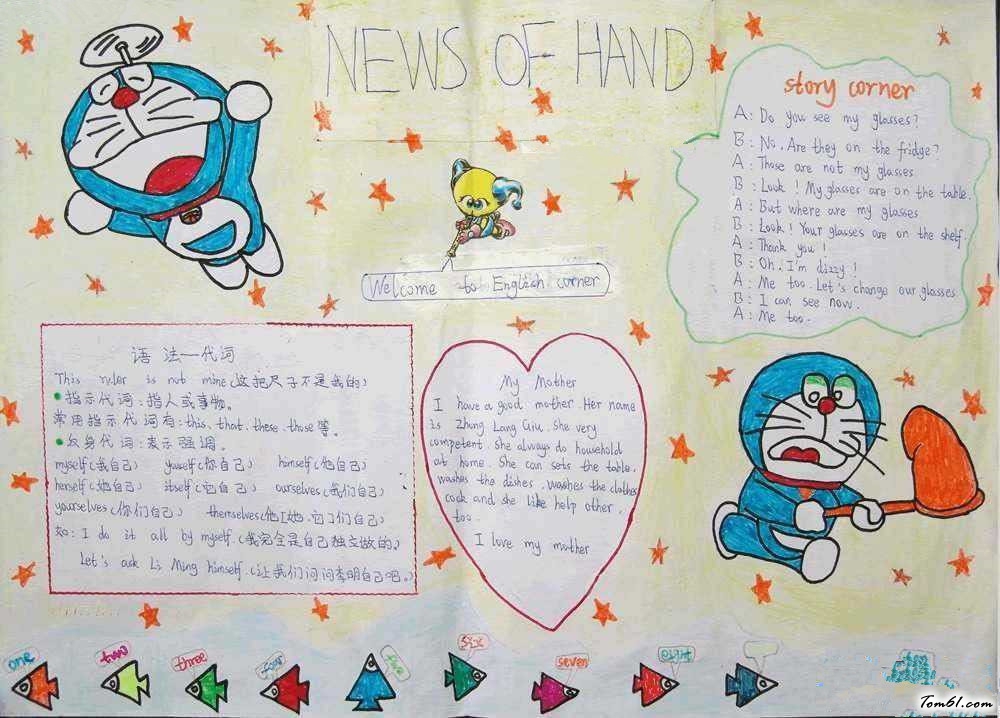 NEWS OF HAND
Welcome to English corner
story corner
A: Do you see my glasses?
B: No. Are they on the fridge?
A: Those are not my glasses.
B: Look! My glasses are on the table.
A: But where are my glasses
B: Look! Your glasses are on the shelf.
A: Thank you!
B: Oh, I'm dizzy!
A: Me too. Let's change our glasses
B: I can see now.
A: Me too.
语法—代词
This ruler is not mine (这把尺子不是我的)
指示代词:指人或事物。
常用指示代词有:this, that, these, those等。
反身代词:表示强调。
myself (我自己) youself (你自己) himself (他自己)
herself (她自己) itself (它自己) ourselves (我们自己)
yourselves (你们自己) themselves (他[她,它]们自己)
如: I do it all by myself. (我完全是自己独立做的。)
Let's ask Li Ming himself. (让我们问问李明自己吧。)
My Mother
I have a good mother. Her name
is Zhung Lang Qiu. she very
competent. She always do household
at home. She can sets the table,
washes the dishes, washes the clothes
cook and she like help other,
too.
I love my mother
one
two
three
four
five
six
seven
eight
Tom61.com